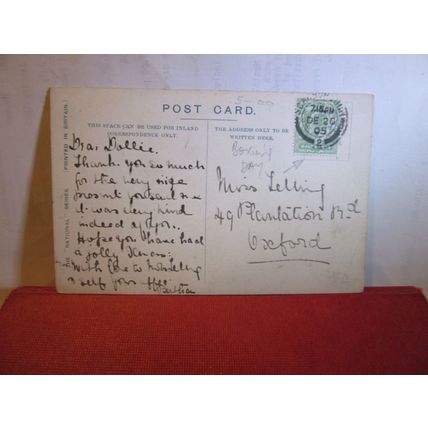 POST CARD.
THIS SPACE CAN BE USED FOR INLAND
CORRESPONDENCE ONLY.
THE ADDRESS ONLY TO BE
WRITTEN HERE.
THE NATIONAL SERIES.
(PRINTED IN BRITAIN.)
5-00
DE 26
05
Boxing
Day
Dollie.
Thank you so much
for the very nice
present you sent me
it was very kind
indeed of you.
Hope you have had
a jolly Xmas:
With love to
& self your
Miss
49 Plantation Rd
Oxford